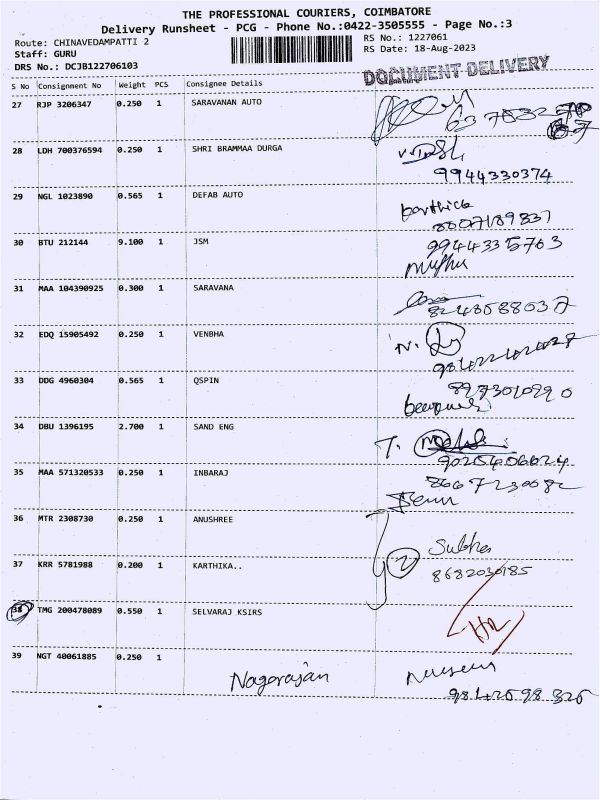 THE PROFESSIONAL COURIERS, COIMBATORE
Delivery Runsheet - PCG - Phone No.:0422-3505555 - Page No.:3
Route: CHINAVEDAMPATTI 2
RS No.: 1227061
Staff: GURU
RS Date: 18-Aug-2023
DRS No.: DCJB122706103
DOCUMENT DELIVERY
S No Consignment No Weight PCS Consignee Details
27 RJP 3206347 0.250 1 SARAVANAN AUTO
28 LDH 700376594 0.250 1 SHRI BRAMMAA DURGA
9944330374
29 NGL 1023890 0.565 1 DEFAB AUTO
karthick
8807189837
30 BTU 212144 9.100 1 JSM
9944335763
Muthu
31 MAA 104390925 0.300 1 SARAVANA
32 EDQ 15905492 0.250 1 VENBHA
N.
33 DDG 4960304 0.565 1 QSPIN
34 DBU 1396195 2.700 1 SAND ENG
T.
35 MAA 571320533 0.250 1 INBARAJ
36 MTR 2308730 0.250 1 ANUSHREE
2 Subha
37 KRR 5781988 0.200 1 KARTHIKA..
8682030185
38 TMG 200478089 0.550 1 SELVARAJ KSIRS
39 NGT 40061885 0.250 1
Nagarajan